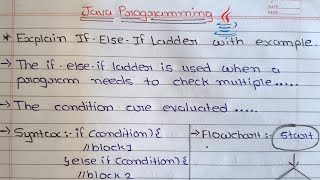 Java Programming
DATE
PAGE
* Explain If-Else-If ladder with example.
→ The if-else-if ladder is used when a
program needs to check multiple.....
→ The condition are evaluated.....
→ Syntax:- if (condition) {
//block1
} else if (condition) {
//block 2
→ Flowchart:-
Start